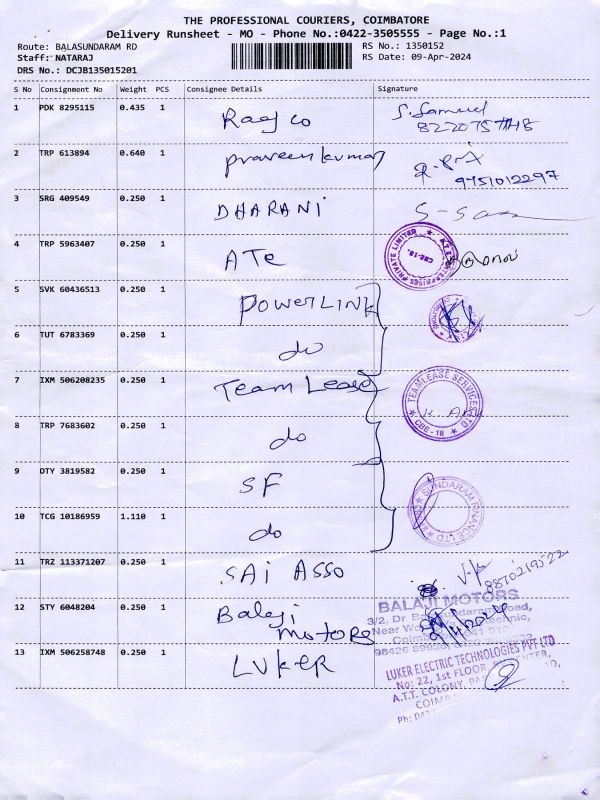 THE PROFESSIONAL COURIERS, COIMBATORE
Delivery Runsheet - MO - Phone No.:0422-3505555 - Page No.:1
Route: BALASUNDARAM RD
Staff: NATARAJ
DRS No.: DCJB135015201
RS No.: 1350152
RS Date: 09-Apr-2024
S No Consignment No Weight PCS Consignee Details Signature
1 PDK 8295115 0.435 1 Raaj co S. Samuel
2 TRP 613894 0.640 1 Praveen kumar
9751012297
3 SRG 409549 0.250 1 DHARANI
4 TRP 5963407 0.250 1 ATE
5 SVK 60436513 0.250 1 POWERLINK
6 TUT 6783369 0.250 1 do
7 IXM 506208235 0.250 1 Team Lease TEAMLEASE SERVICES LTD. CBE - 18
8 TRP 7683602 0.250 1 do
9 OTY 3819582 0.250 1 SF SUNDARAM FINANCE LTD
10 TCG 10186959 1.110 1 do
11 TRZ 113371207 0.250 1 SAI ASSO 8870219522
12 STY 6048204 0.250 1 Balaji motors BALAJI MOTORS
3/2, Dr
13 IXM 506258748 0.250 1 LUKER LUKER ELECTRIC TECHNOLOGIES PVT LTD
No: 22, 1st FLOOR,
A.T.T. COLONY,